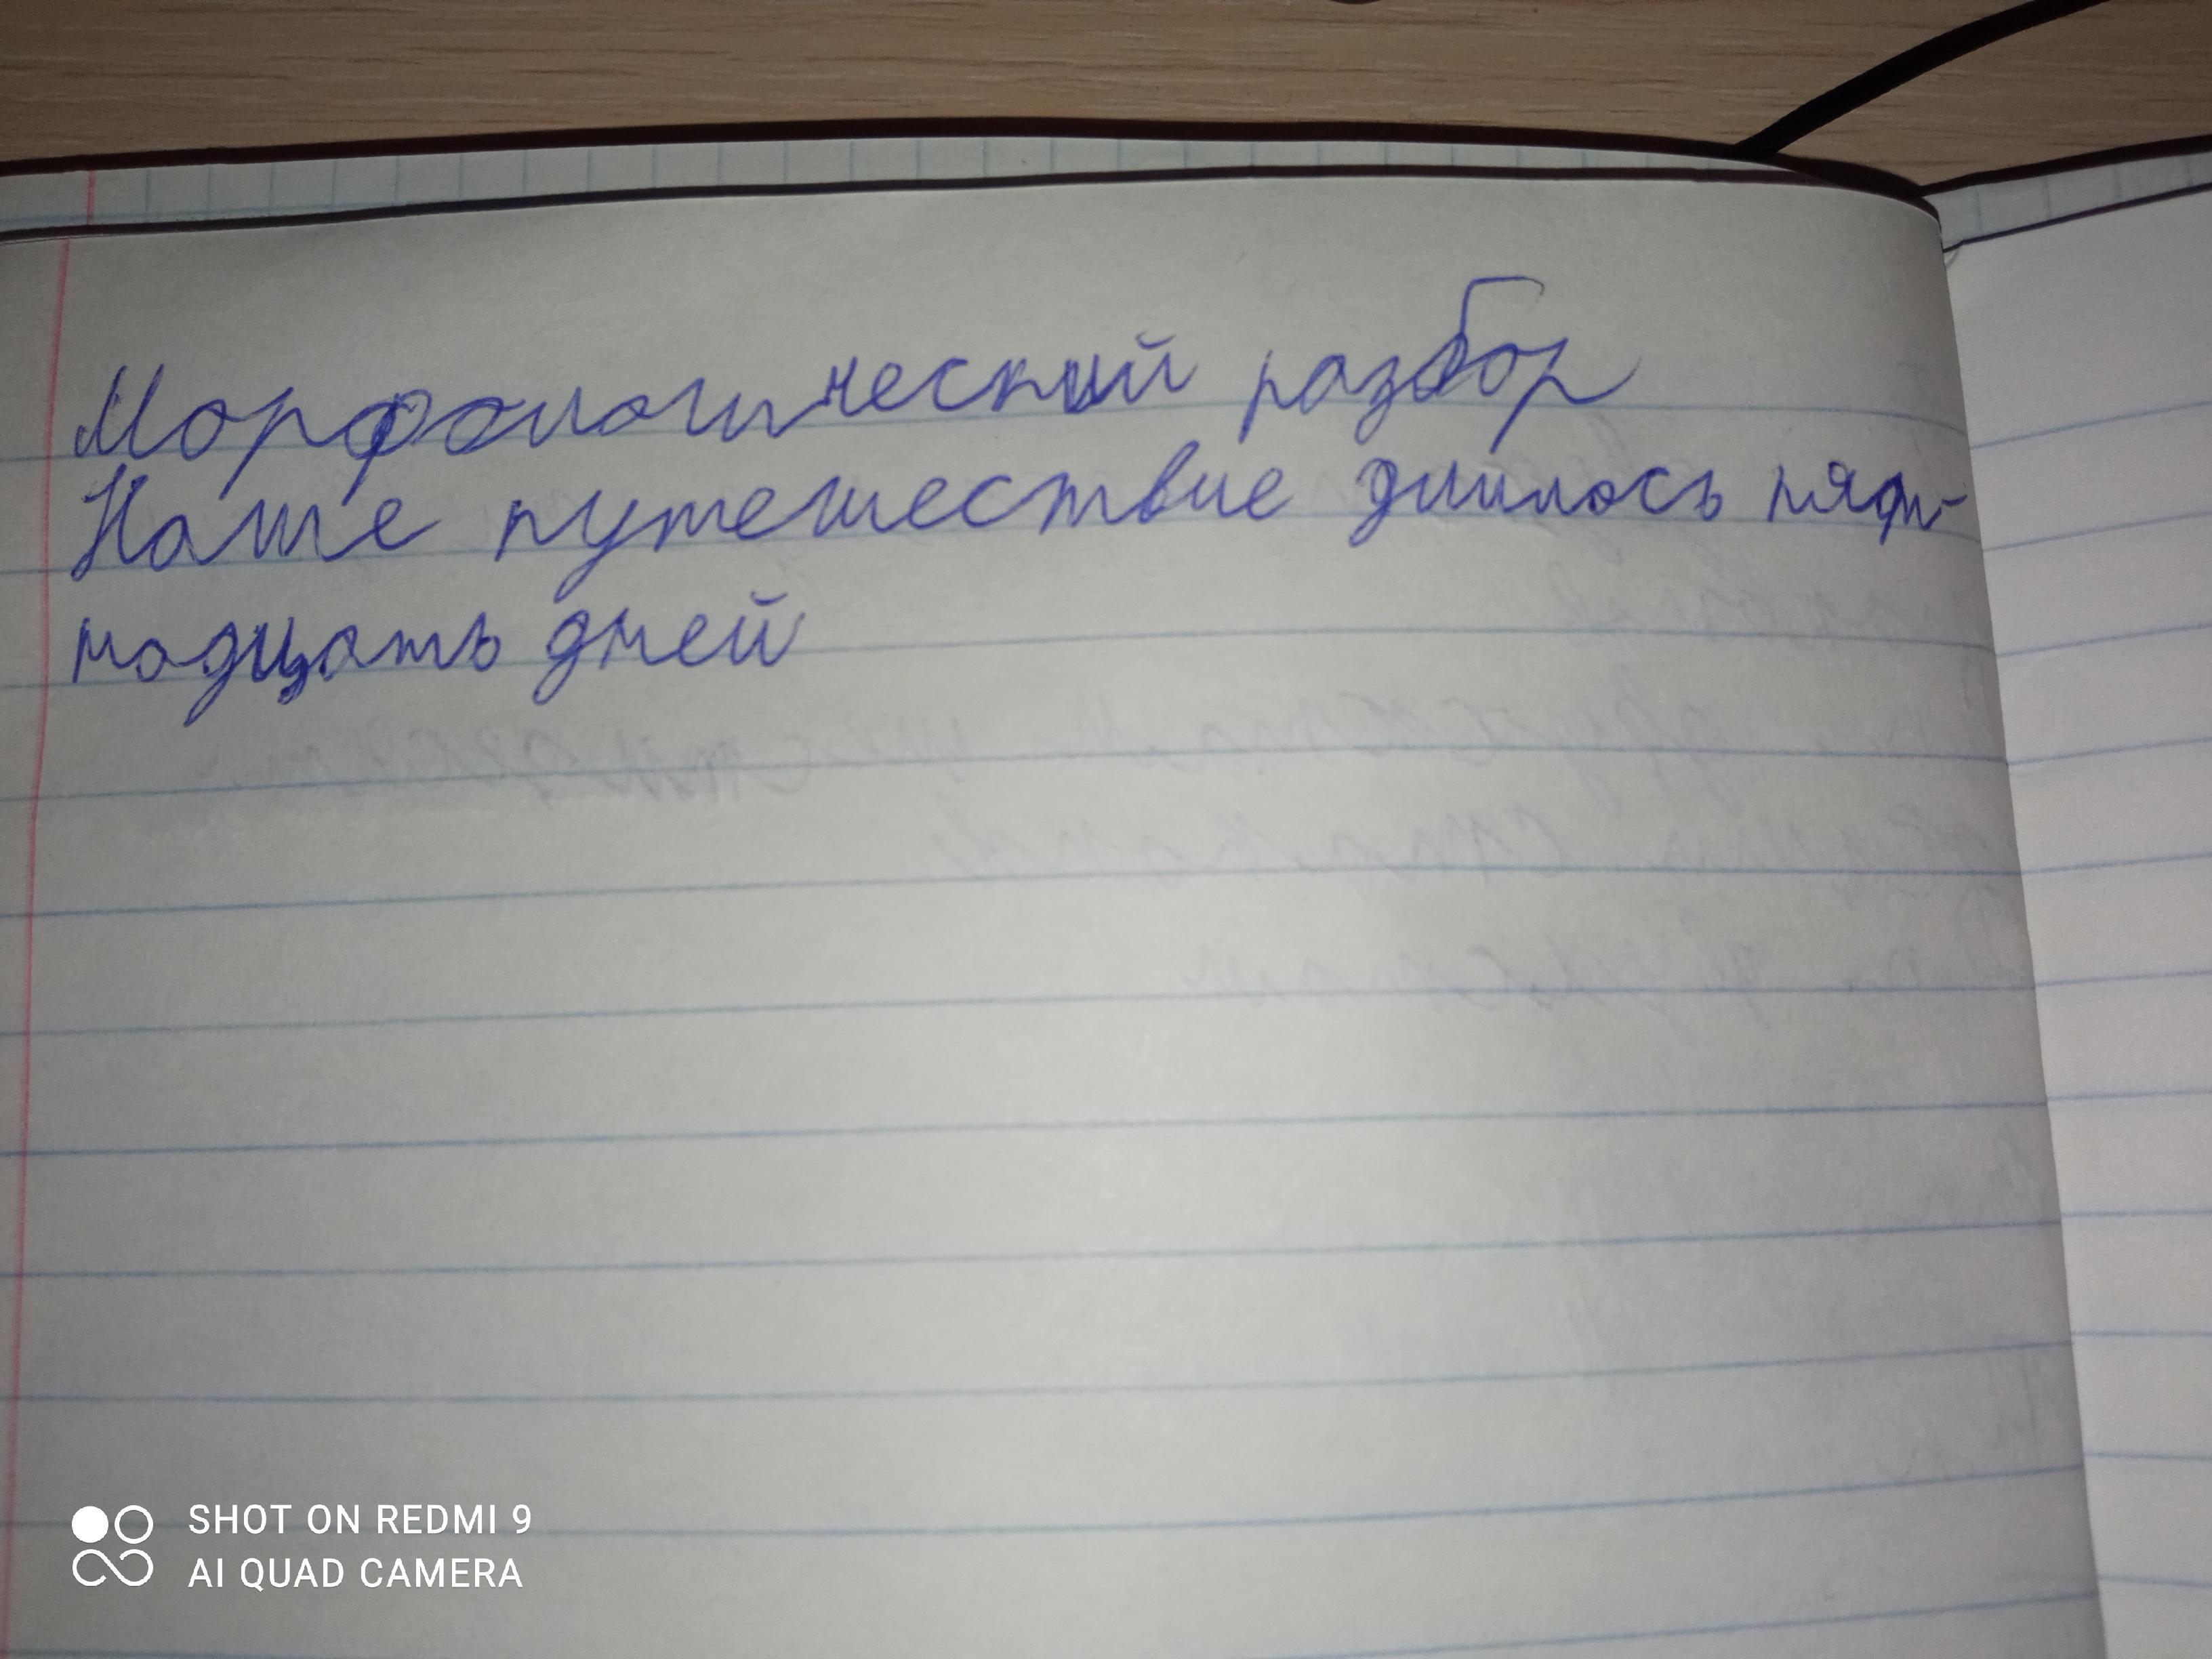 Морфологический разбор
Наше путешествие длилось пят-
надцать дней
SHOT ON REDMI 9
AI QUAD CAMERA